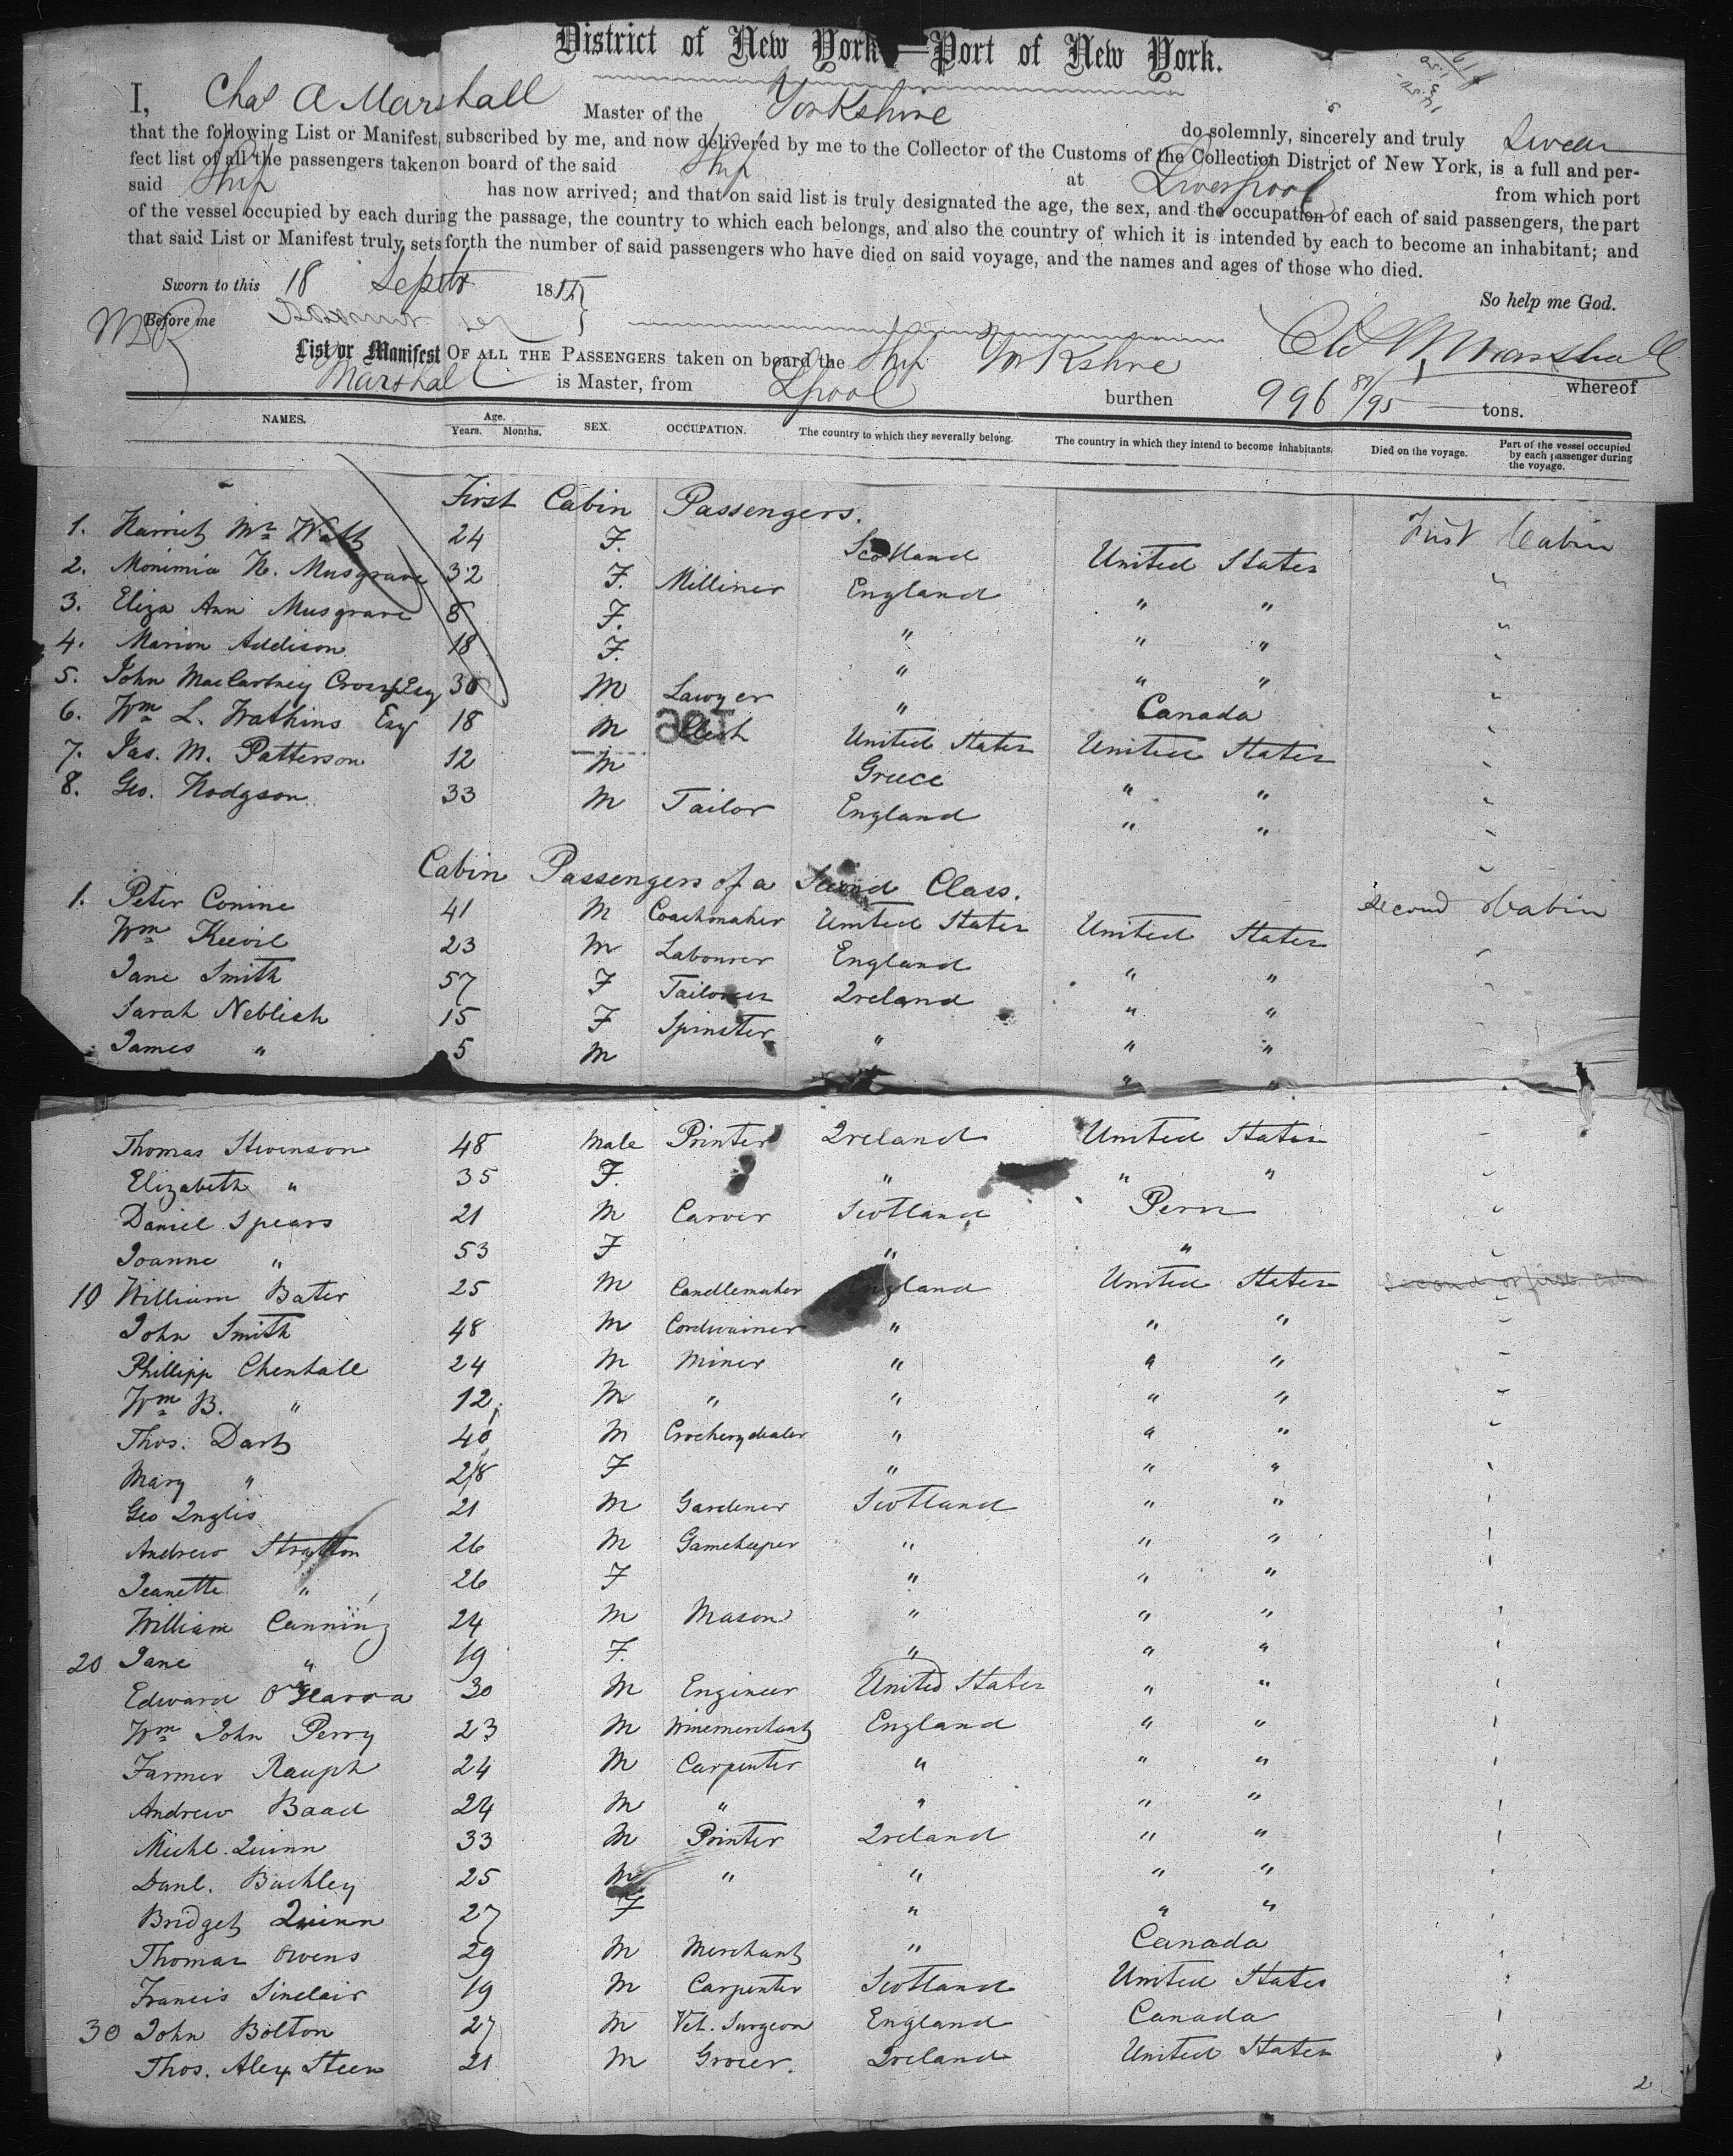 District of New York — Port of New York.
I, Chas A Marshall Master of the Yorkshire do solemnly, sincerely and truly Swear
that the following List or Manifest, subscribed by me, and now delivered by me to the Collector of the Customs of the Collection District of New York, is a full and per-
fect list of all the passengers taken on board of the said Ship at Liverpool from which port
said Ship has now arrived; and that on said list is truly designated the age, the sex, and the occupation of each of said passengers, the part
of the vessel occupied by each during the passage, the country to which each belongs, and also the country of which it is intended by each to become an inhabitant; and
that said List or Manifest truly sets forth the number of said passengers who have died on said voyage, and the names and ages of those who died.
So help me God.
Sworn to this 18 Septbr 18
Before me
Marshall
List or Manifest OF ALL THE PASSENGERS taken on board the Ship Yorkshire whereof
Marshall is Master, from Lpool burthen 996 87/95 tons.
NAMES. Age. Years. Months. SEX. OCCUPATION. The country to which they severally belong. The country in which they intend to become inhabitants. Died on the voyage. Part of the vessel occupied by each passenger during the voyage.
First Cabin Passengers. First Cabin
1. Harriet Watt 24 F. Scotland United States
2. Monimia H. Musgrave 32 F. Milliner England " "
3. Eliza Ann Musgrave 8 F. " " "
4. Marion Addison 18 F. " " "
5. John MacCartney Cross Esq 30 M Lawyer " Canada
6. Wm L. Watkins Esq 18 M Clerk United States United States
7. Jas. M. Patterson 12 M Greece " "
8. Geo. Hodgson 33 M Tailor England " "
Cabin Passengers of a Second Class. Second Cabin
1. Peter Conine 41 M Coachmaker United States United States
Wm Keevil 23 M Labourer England " "
Jane Smith 57 F Ireland " "
Sarah Neblich 15 F Spinster " " "
James " 5 M " "
Thomas Stevenson 48 Male Printer Ireland United States
Elizabeth " 35 F. " " "
Daniel Spears 21 M Carver Scotland Peru
Joanne " 53 F " "
10 William Bater 25 M Candlemaker England United States
John Smith 48 M Cordwainer " " "
Phillipp Chenhall 24 M Miner " " "
Wm B. " 12 M " " " "
Thos. Dart 40 M Crockery dealer " " "
Mary " 28 F " " "
Geo Inglis 21 M Gardener Scotland " "
Andrew Stratton 26 M Gamekeeper " " "
Jeanette " 26 F " " "
William Canning 24 M Mason " " "
20 Jane " 19 F. " " "
Edward O'Harra 30 M Engineer United States " "
Wm John Perry 23 M Winemerchant England " "
Farmer Raugh 24 M Carpenter " " "
Andrew Baad 24 M " " " "
Michl. Quinn 33 M Printer Ireland " "
Danl. Buckley 25 M " " " "
Bridget Quinn 27 F " " "
Thomas Owens 29 M Merchant " Canada
Francis Sinclair 19 M Carpenter Scotland United States
30 John Bolton 27 M Vet. Surgeon England Canada
Thos. Alex Steen 21 M Grocer. Ireland United States
2